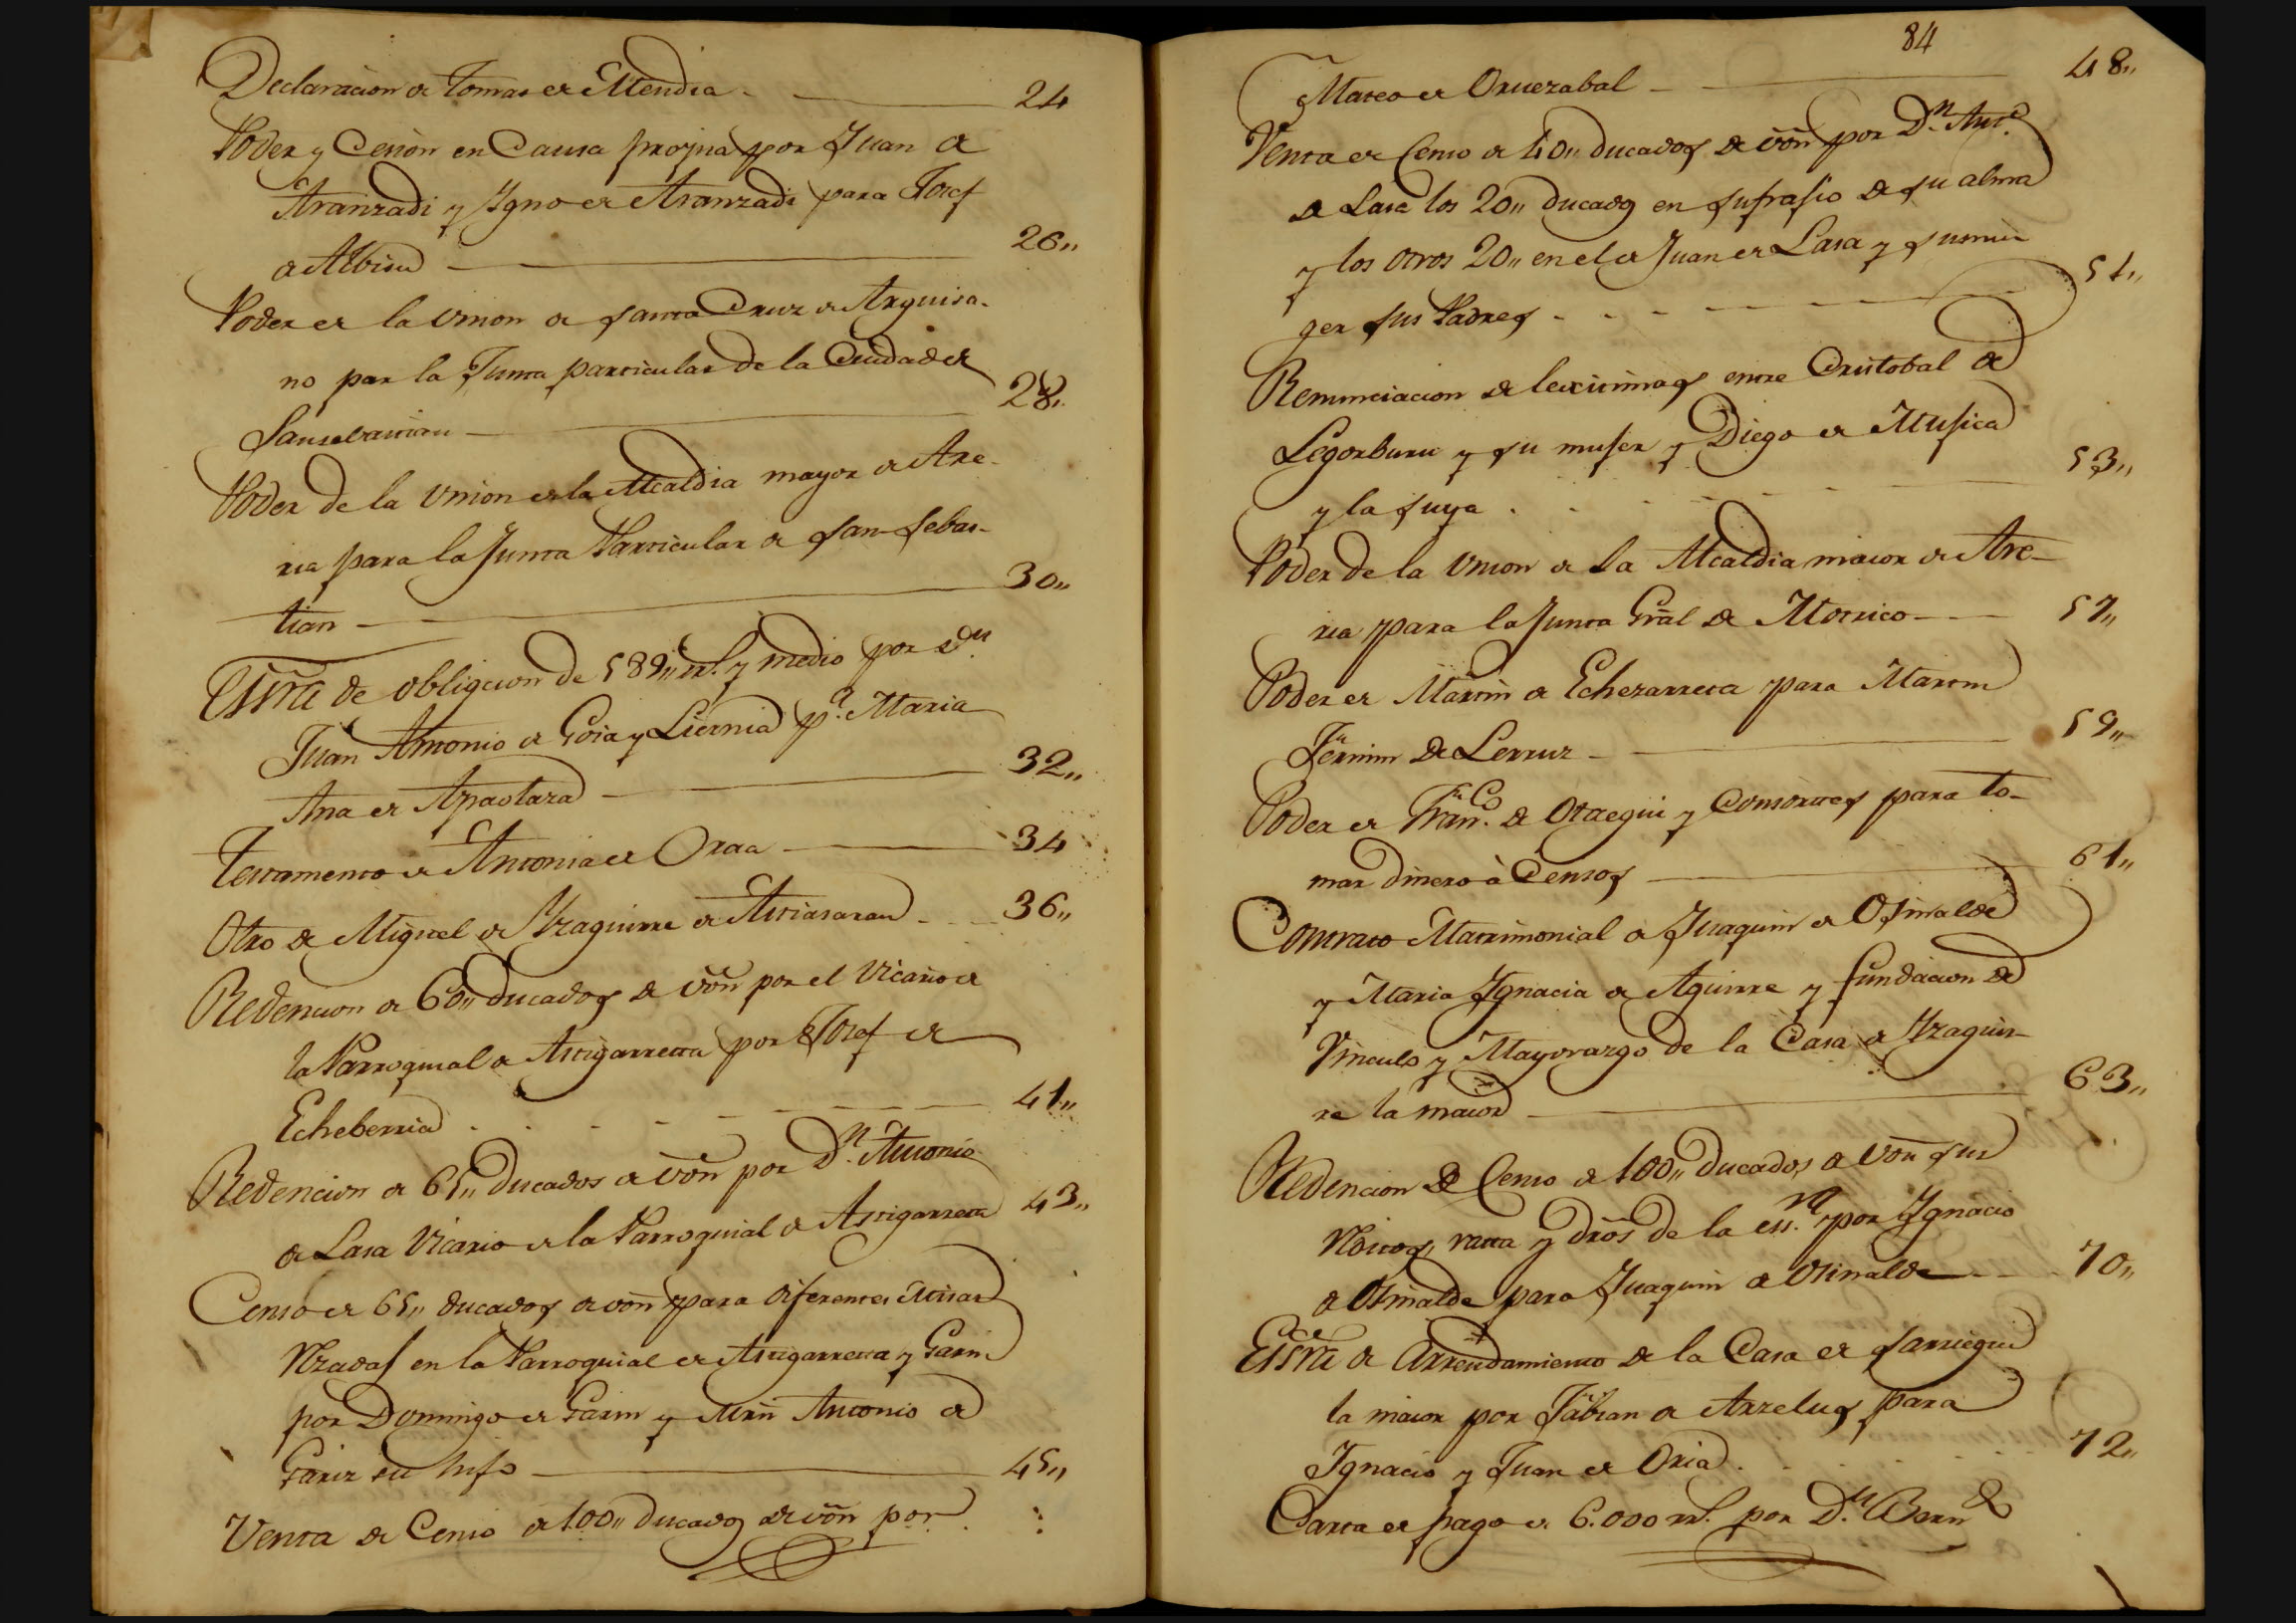 Declaracion de Tomas de Mendia - 24
Poder y Cesion en Causa propria por Juan de
Aranzadi y Ygno de Aranzadi para Josef
de Albisu - 26,,
Poder de la Union de Santa Cruz de Arguisa-
no par la Junta particular de la Ciudad de
Sansebastian - 28,,
Poder de la Union de la Alcaldia mayor de Are-
ria para la Junta Particular de San Sebas-
tian - 30,,
Essra de obligcion de 589,, rs. y medio por dn
Juan Antonio de Goia y Liernia pa. Maria
Ana de Apaolaza - 32,,
Testamento de Antonia de Oraa - 34
Otro de Miguel de Yzaguirre de Astiasaran - 36,,
Redencion de 60,, ducados de von por el Vicario de
la Parroquial de Astigarreta por Josef de
Echeberria - 41,,
Redencion de 65,, Ducados de von por Dn. Antonio
de Lasa Vicario de la Parroquial de Astigarreta 43,,
Censo de 65,, ducados de von para diferentes Misas
Rzadas en la Parroquial de Astigarreta y Garin
por Domingo de Garin y Mrn Antonio de
Gariz su hijo - 45,,
Venta de Censo de 100,, ducados de von por
84
Mateo de Oruezabal - 48,,
Venta de Censo de 40,, ducados de von por Dn. Anto.
de Lasa los 20,, ducados en sufrajio de su alma
y los otros 20,, en el de Juan de Lasa y su mu-
ger sus Padres - 51,,
Renunciacion de lexitimas entre Cristobal de
Legorburu y su mujer y Diego de Mujica
y la suya - 53,,
Poder de la Union de la Alcaldia maior de Are-
ria para la Junta Gral de Motrico - 57,,
Poder de Martin de Echezarreta para Martin
Fermin de Lerruz - 59,,
Poder de Franco. de Otaegui y Consortes para to-
mar dinero à Censos - 61,,
Contrato Matrimonial de Juaquin de Osinalde
y Maria Ygnacia de Aguirre y fundacion de
Vinculo y Mayorazgo de la Casa de Yzaguir-
re la maior - 63,,
Redencion de Censo de 100,, ducados de von sus
Rditos, ratta y dros de la essra. por Ygnacio
de Osinalde para Juaquin de Osinalde - 70,,
Essra de Arrendamiento de la Casa de Sarriegui
la maior por Fabian de Arzelus para
Ignacio y Juan de Oria - 72,,
Carta de pago de 6.000 rs. por Dn. Berndo